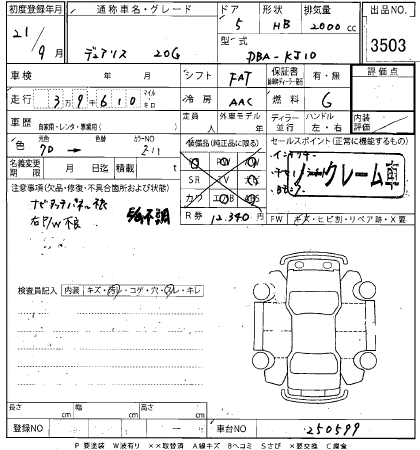 初度登録年月 通称車名・グレード ドア 形状 排気量 出品NO.
21/9月 デュアリス 20G 5 HB 2000cc 3503
型式 DBA-KJ10
車検 年 月 シフト FAT 保証書 有・無 評価点
走行 39610 マイル キロ 冷房 AAC 燃料 G
車歴 自家用・レンタ・事業用( ) 定員 人 外車モデル 年 ディーラー 並行 ハンドル 左・右 内装評価
色 元色 色替 カラーNO 211
装備品(純正品に限る) セールスポイント(正常に機能するもの)
名義変更期限 月 日迄 積載 t
SR TV
ノークレーム
注意事項(欠品・修復・不具合箇所および状態) カワ
ナビタッチパネル
右P/W不良 不調
R券 12,340円 FW キズ・ヒビ割・リペア跡・X要
検査員記入 内装 キズ・汚レ・コゲ・穴・スレ・キレ
長さ cm 幅 cm 高さ cm
登録NO 車台NO 250599
P 要塗装 W波有り ××取替済 A線キズ Bヘコミ Sさび ×要交換 C腐食